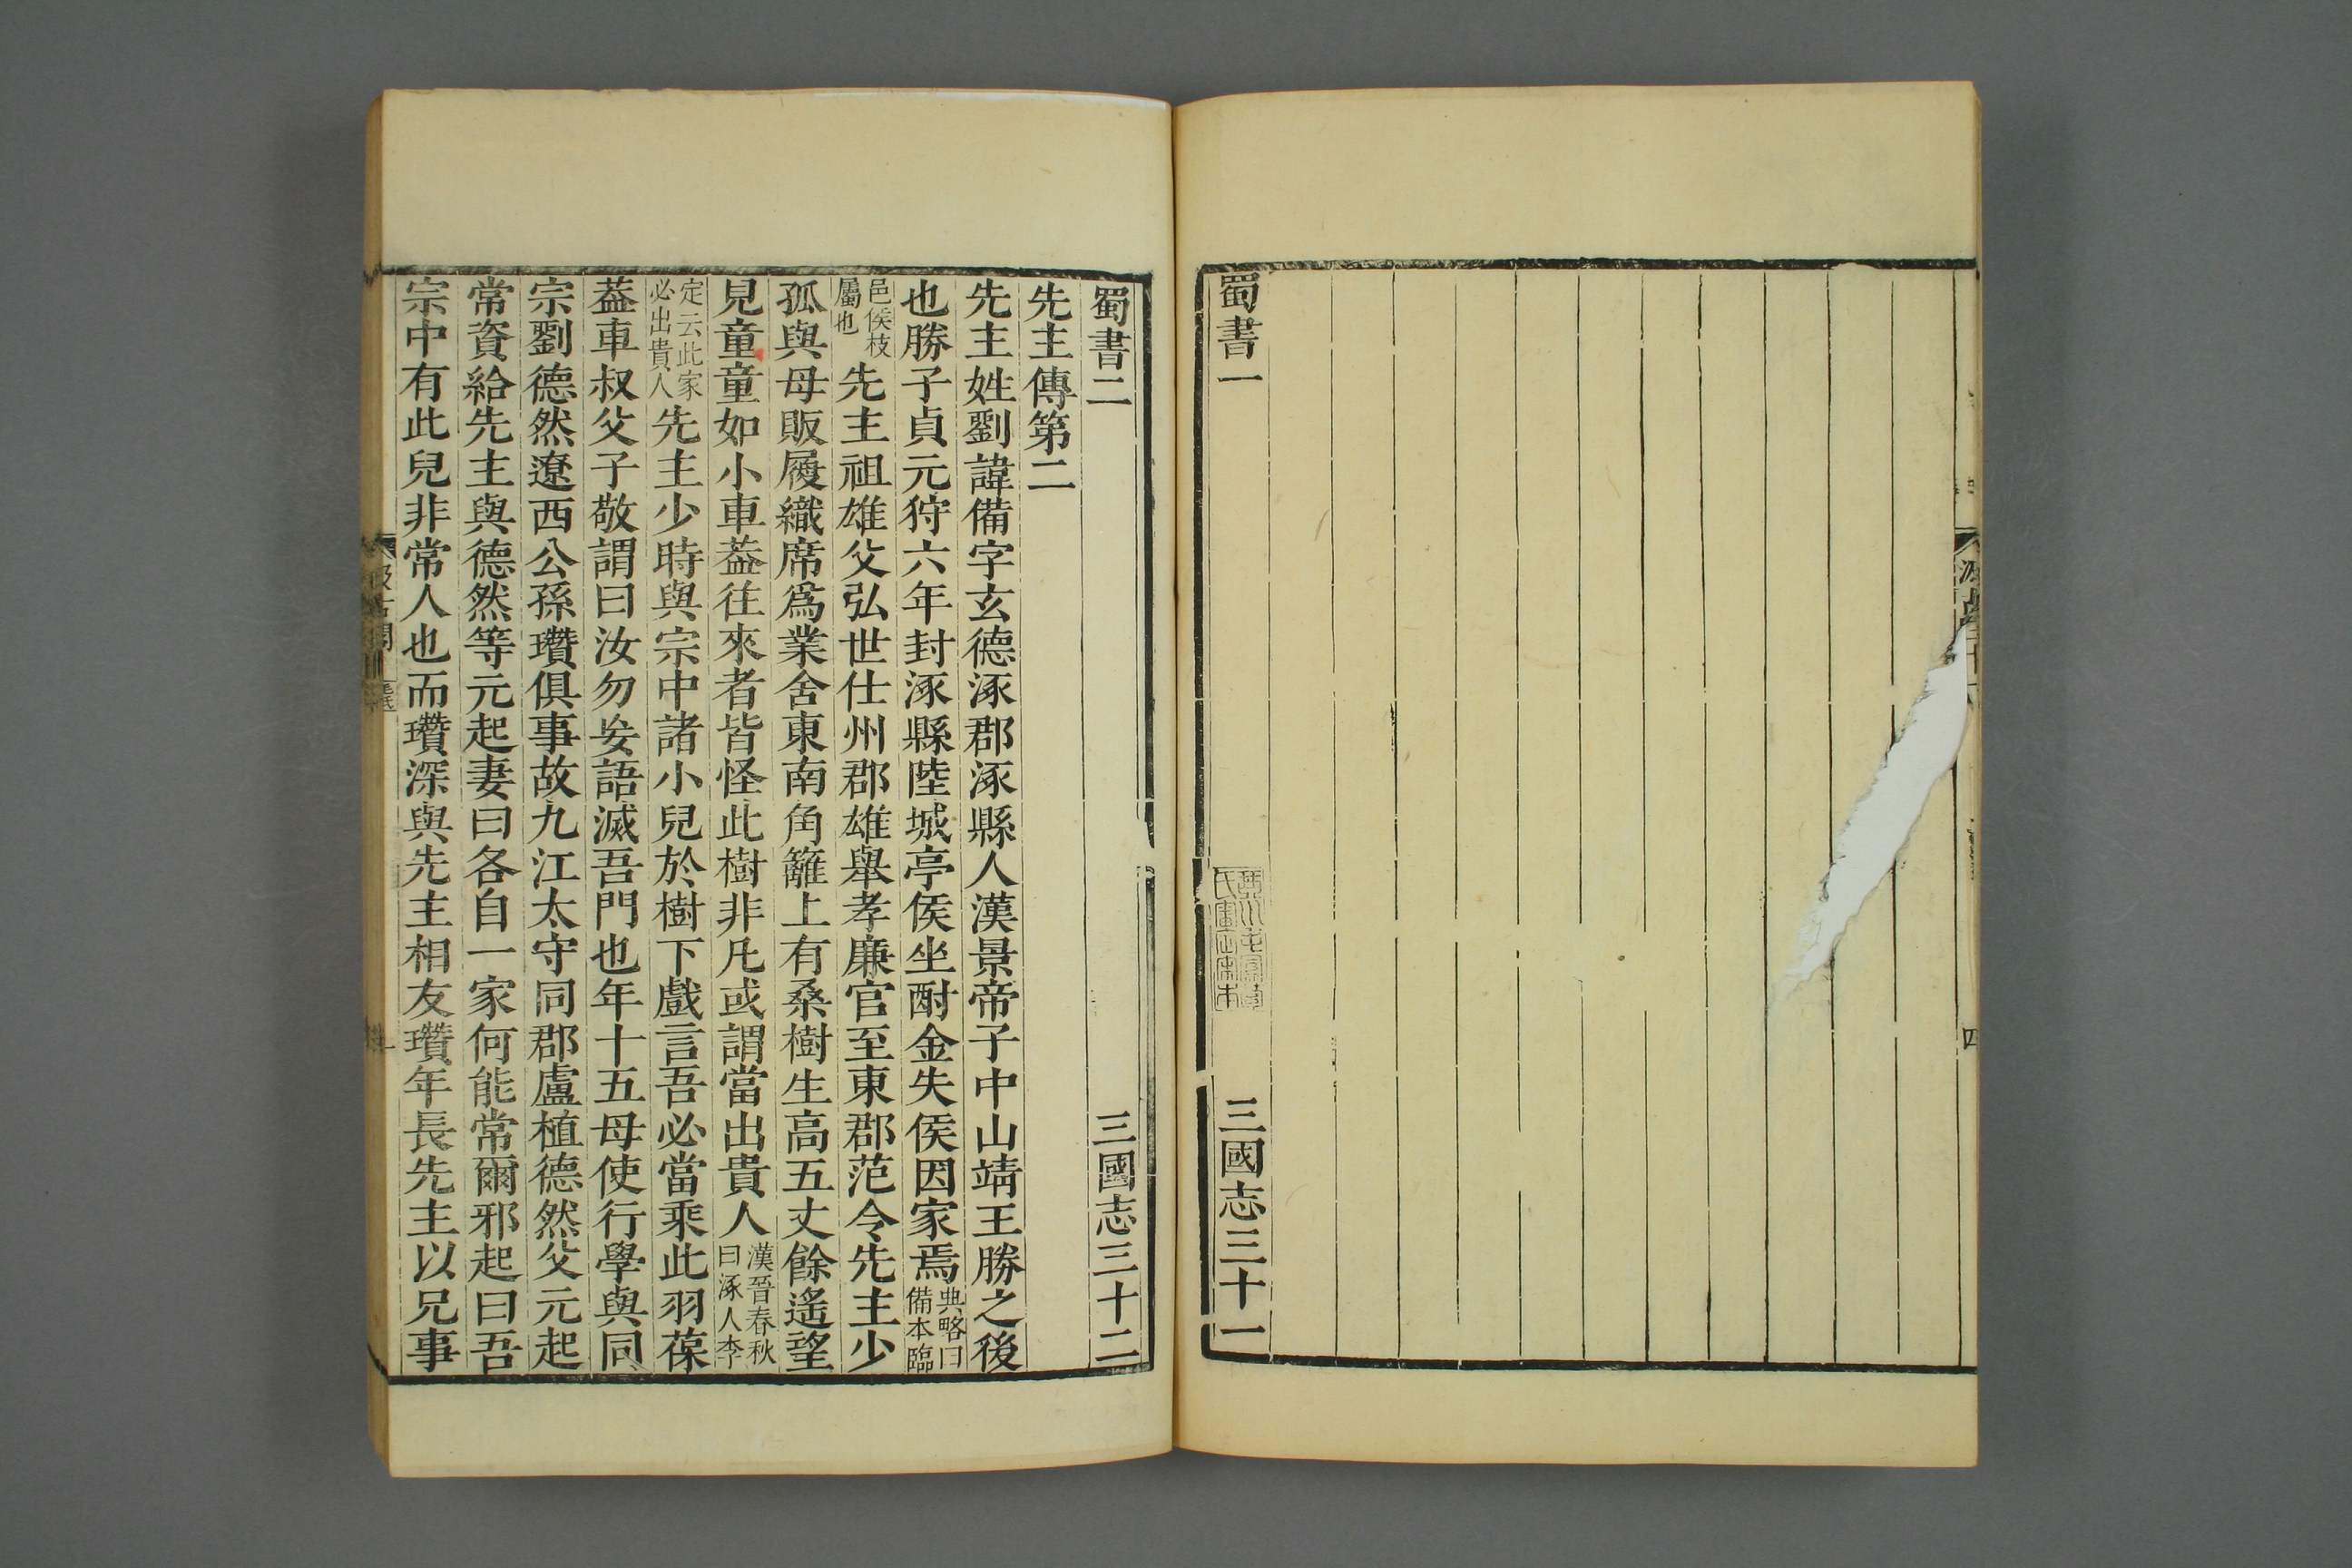 蜀書一 三國志三十一
蜀書二 三國志三十二
先主傳第二
先主姓劉諱備字玄德涿郡涿縣人漢景帝子中山靖王勝之後
也勝子貞元狩六年封涿縣陸城亭侯坐酎金失侯因家焉典略曰備本臨
邑侯枝屬也先主祖雄父弘世仕州郡雄舉孝廉官至東郡范令先主少
孤與母販履織席爲業舍東南角籬上有桑樹生高五丈餘遙望
見童童如小車葢往來者皆怪此樹非凡或謂當出貴人漢晉春秋曰涿人李
定云此家必出貴人先主少時與宗中諸小兒於樹下戲言吾必當乘此羽葆
葢車叔父子敬謂曰汝勿妄語滅吾門也年十五母使行學與同
宗劉德然遼西公孫瓚俱事故九江太守同郡盧植德然父元起
常資給先主與德然等元起妻曰各自一家何能常爾邪起曰吾
宗中有此兒非常人也而瓚深與先主相友瓚年長先主以兄事